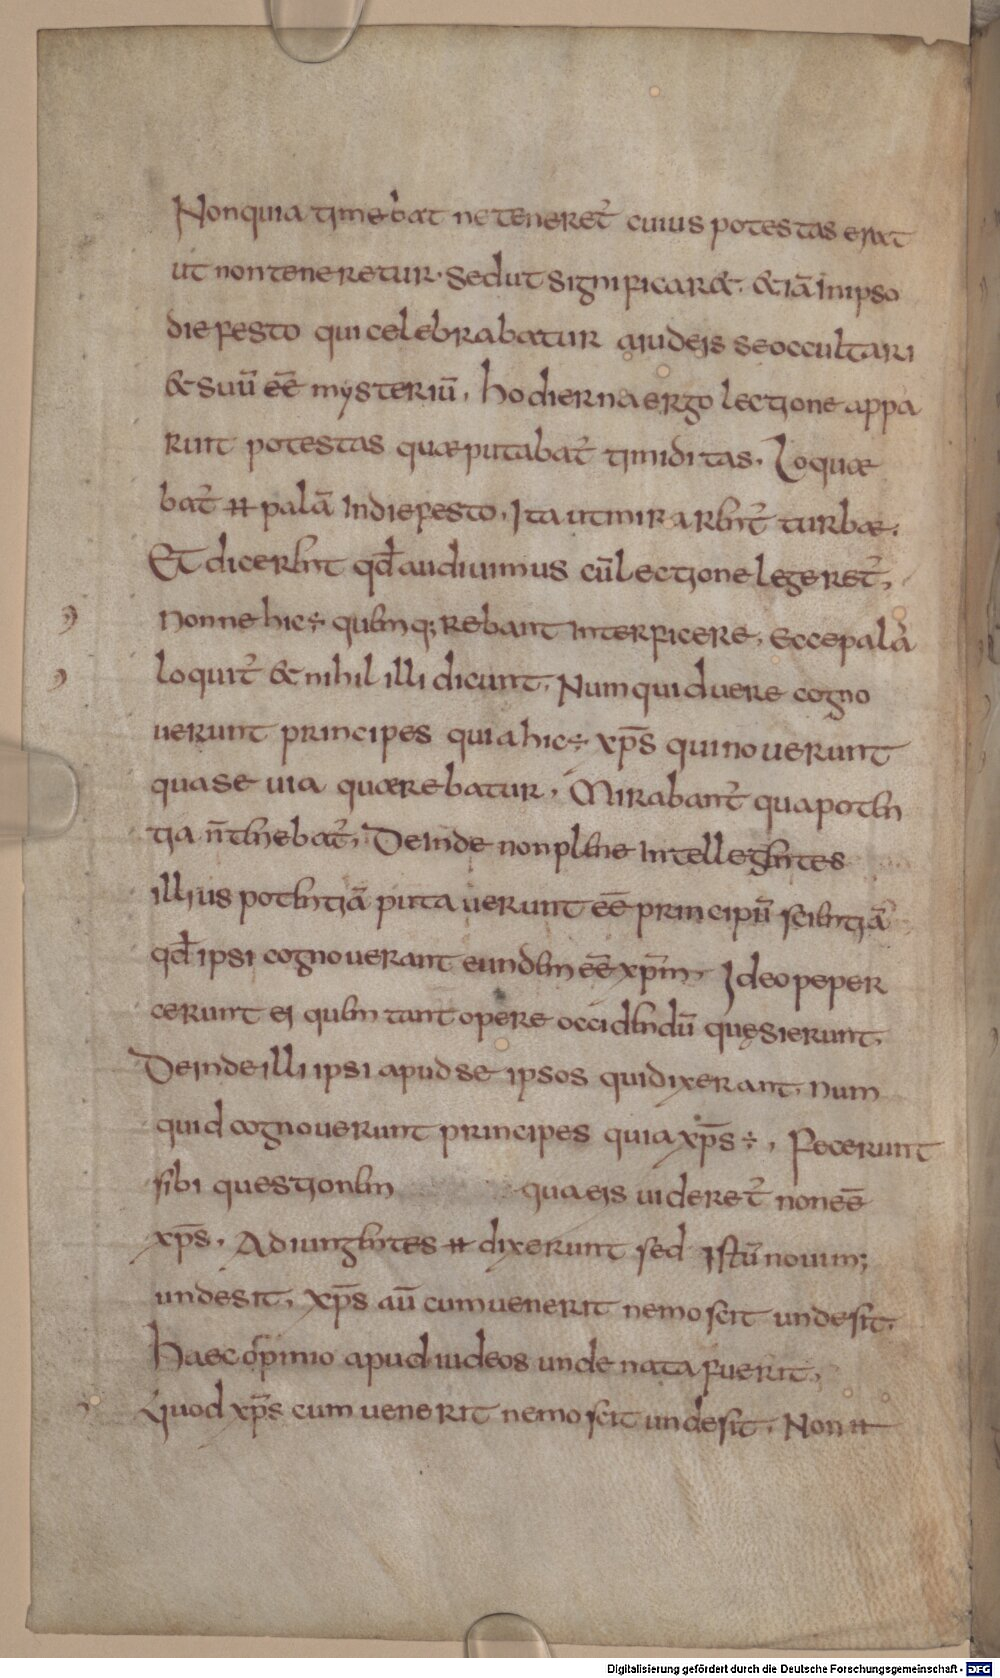 Non quia timebat ne teneret᷑ cuius potestas erat
ut non teneretur· Sed ut significar&· & iā in ipso
die festo qui celebrabatur a iudeis se occultari
& suū eē mysteriū, hodierna ergo lectione appa
ruit potestas quæ putabat᷑ timiditas, Loquæ
bat᷑ ⁊⁊ palā In die festo, Ita ut mirarent᷑ turbæ,
Et dicerent qđ audiuimus cū lectione legeret᷑,
Nonne hic ÷ quem q; rebant interficere, Ecce palā
loquit᷑ & nihil illi dicunt, Numquid uere cogno
uerunt principes quia hic ÷ xp̄s qui nouerunt
qua seuia quærebatur, Mirabant᷑ qua poten
tia n̄ tenebat᷑, Deinde non plene intellegentes
illius potentiā putauerunt eē principū scientiā
qđ ipsi cognouerant eundem eē xp̄m, Ideo peper
cerunt ei quem tantopere occidendū quęsierunt,
Deinde illi ipsi apud se ipsos qui dixerant, num
quid cognouerunt principes quia xp̄s ÷, Fecerunt
sibi questionem qua eis uideret᷑ non eē
xp̄s, Adiungentes ⁊⁊ dixerunt sed Istū nouim;
unde sit, Xp̄s aū cum uenerit nemo scit unde sit,
Haec opinio apud iudeos unde nata fuerit,
Quod xp̄s cum uenerit nemo scit unde sit, Non ⁊⁊
Digitalisierung gefördert durch die Deutsche Forschungsgemeinschaft - DFG